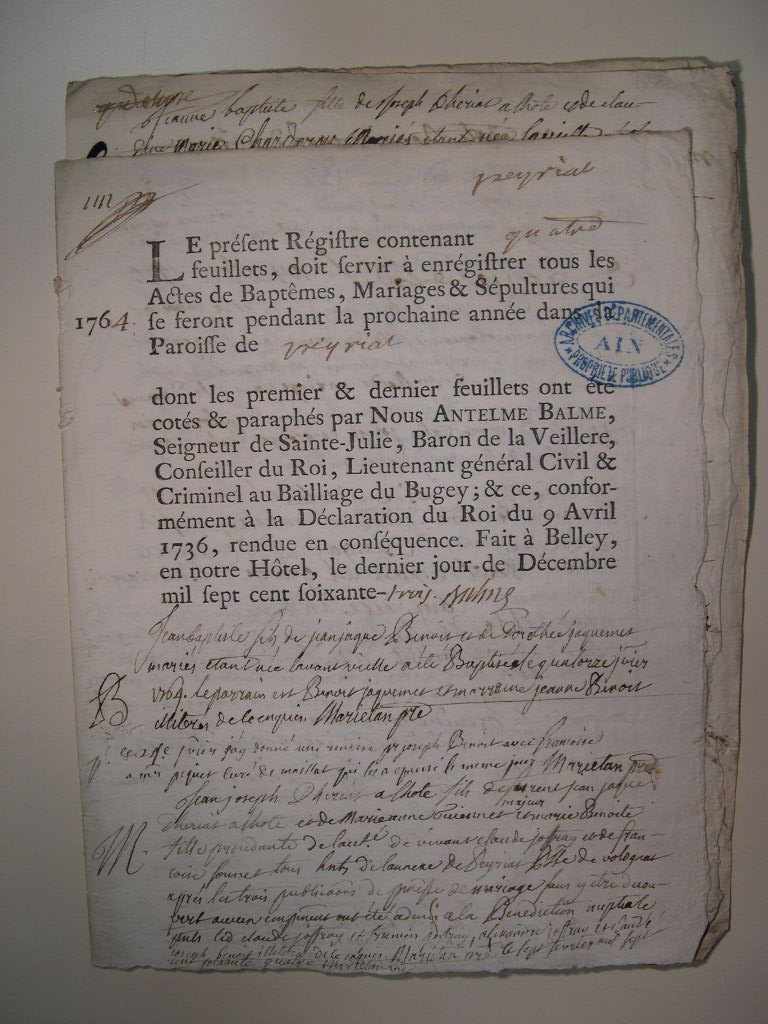 Jeanne baptiste fille de Joseph Theriat alhote et de clau-
dine Marie
peyriat
LE préſent Régiſtre contenant quatre
feuillets, doit ſervir à enrégiſtrer tous les
Actes de Baptêmes, Mariages & Sépultures qui
1764. ſe feront pendant la prochaine année dans la
Paroiſſe de peyriat
ARCHIVES DÉPARTEMENTALES
AIN
PROPRIÉTÉ PUBLIQUE
dont les premier & dernier feuillets ont été
cotés & paraphés par Nous ANTELME BALME,
Seigneur de Sainte-Julie, Baron de la Veillere,
Conſeiller du Roi, Lieutenant général Civil &
Criminel au Bailliage du Bugey; & ce, confor-
mément à la Déclaration du Roi du 9 Avril
1736, rendue en conſéquence. Fait à Belley,
en notre Hôtel, le dernier jour de Décembre
mil ſept cent ſoixante-trois. Balme
Jean baptiste fils de jean jaque Benoit et de Dorothée jaquemet
mariés etant née lavant vielle a été Baptisé le quatorze jvier
B 1764. le parrain est Benoit jaquemet et marraine jeanne Benoit
illitrés de ce enquis Marietan ptre
jvier jay donné une remise pr joseph Benoit avec francoise
a mr piquet curé de maillat qui les a épousé le meme jour Marietan ptre
Jean joseph Theriat alhote fils de jean jaque
M Theriat alhote et de Marianne et marie Benoite majeur
fille de de vivant claude joffray et de fran-
coise tous de Peyriat de volognat
après les trois publications de promesse de mariage sans y etre decou-
vert aucun empechement ont été admis a la Benediction nuptiale
claude joffray et joffray, alexandre joffray et claude
joseph benoit illitrés de ce enquis Marietan ptre le sept fevrier mil sept
cent soixante quatre